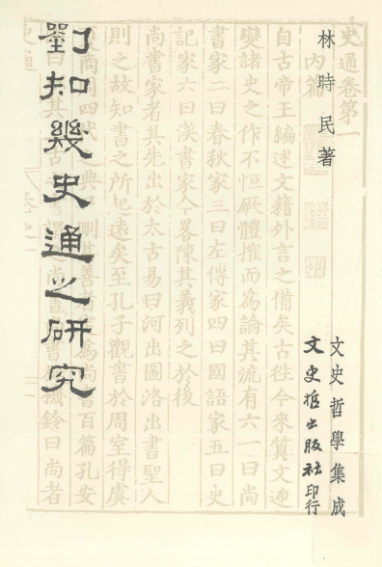 史通卷第一
內篇
林時民著
文史哲學集成
文史哲出版社印行
自古帝王編述文籍外言之備矣古往今來質文遞
變諸史之作不恒厥體搉而為論其流有六一曰尚
書家二曰春秋家三曰左傳家四曰國語家五曰史
記家六曰漢書家今畧陳其義列之於後
尚書家者其先出於太古易曰河出圖洛出書聖人
則之故知書之所起遠矣至孔子觀書於周室得虞
商周四 之典 刪其善 為尚書百篇孔安
曰 其 古 尚書 鈐曰尚者
劉知幾史通之研究